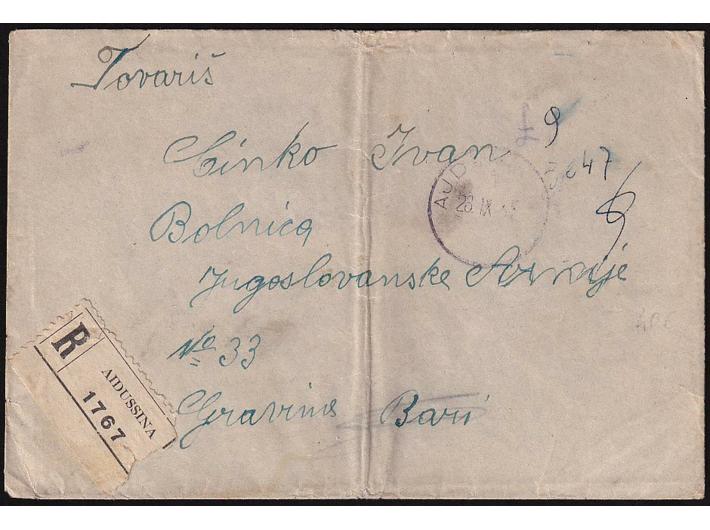 Tovariš
Cinko Ivan
Bolnica
Jugoslovanske Armije
No 33
Gravina Bari
9
647
28 IX
R
AIDUSSINA
1767